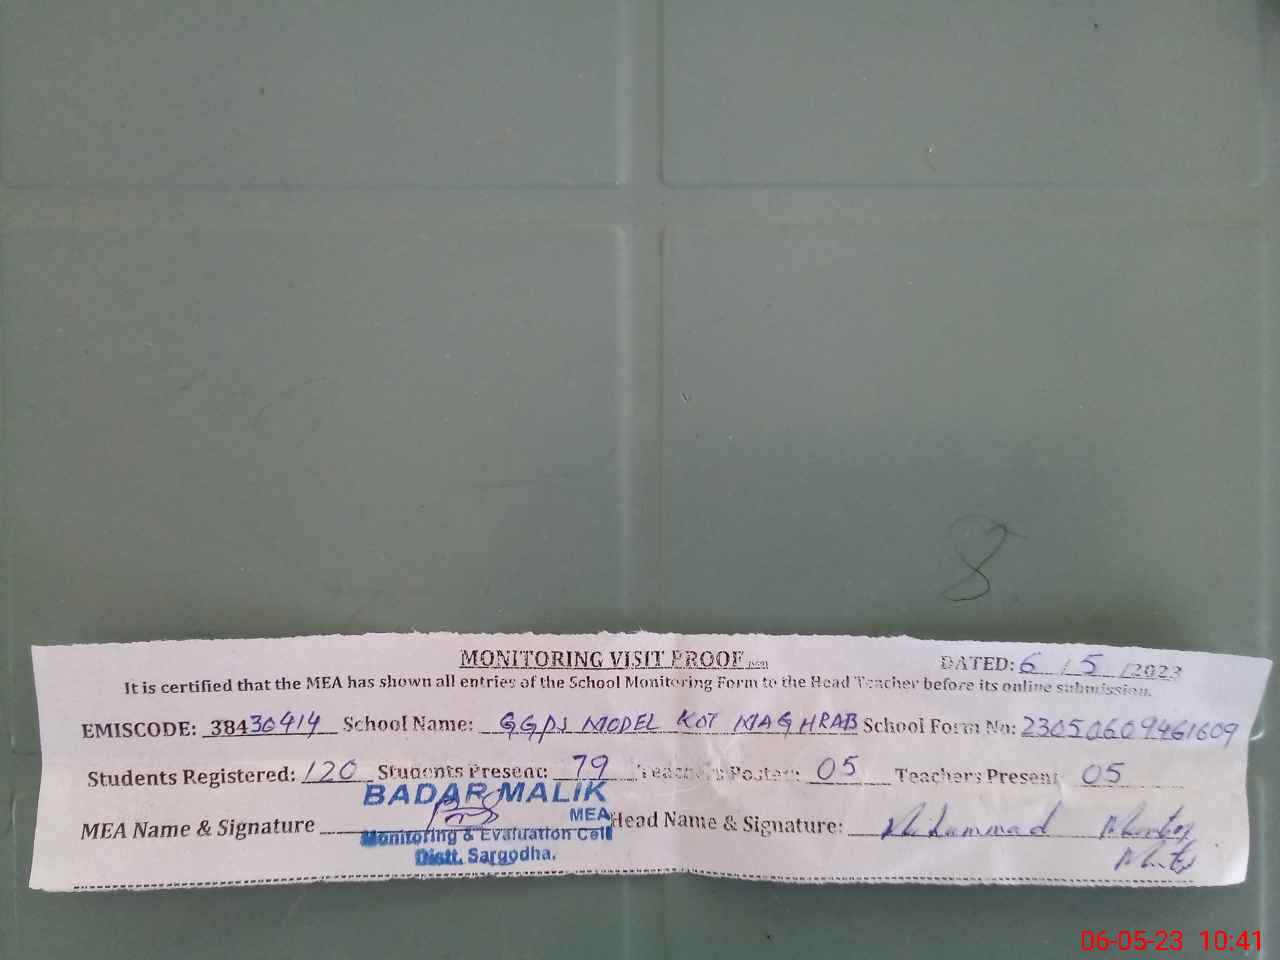 MONITORING VISIT PROOF DATED: 6/5/2023
It is certified that the MEA has shown all entries of the School Monitoring Form to the Head Teacher before its online submission.
EMISCODE: 38430414 School Name: GGPS MODEL KOT MAGHRAB School Form No: 23050609461609
Students Registered: 120 Students Present: 79 Teachers Posted: 05 Teachers Present 05
BADAR MALIK
MEA Name & Signature MEA Head Name & Signature: Muhammad
Monitoring & Evaluation Cell
Distt. Sargodha.
8
06-05-23 10:41